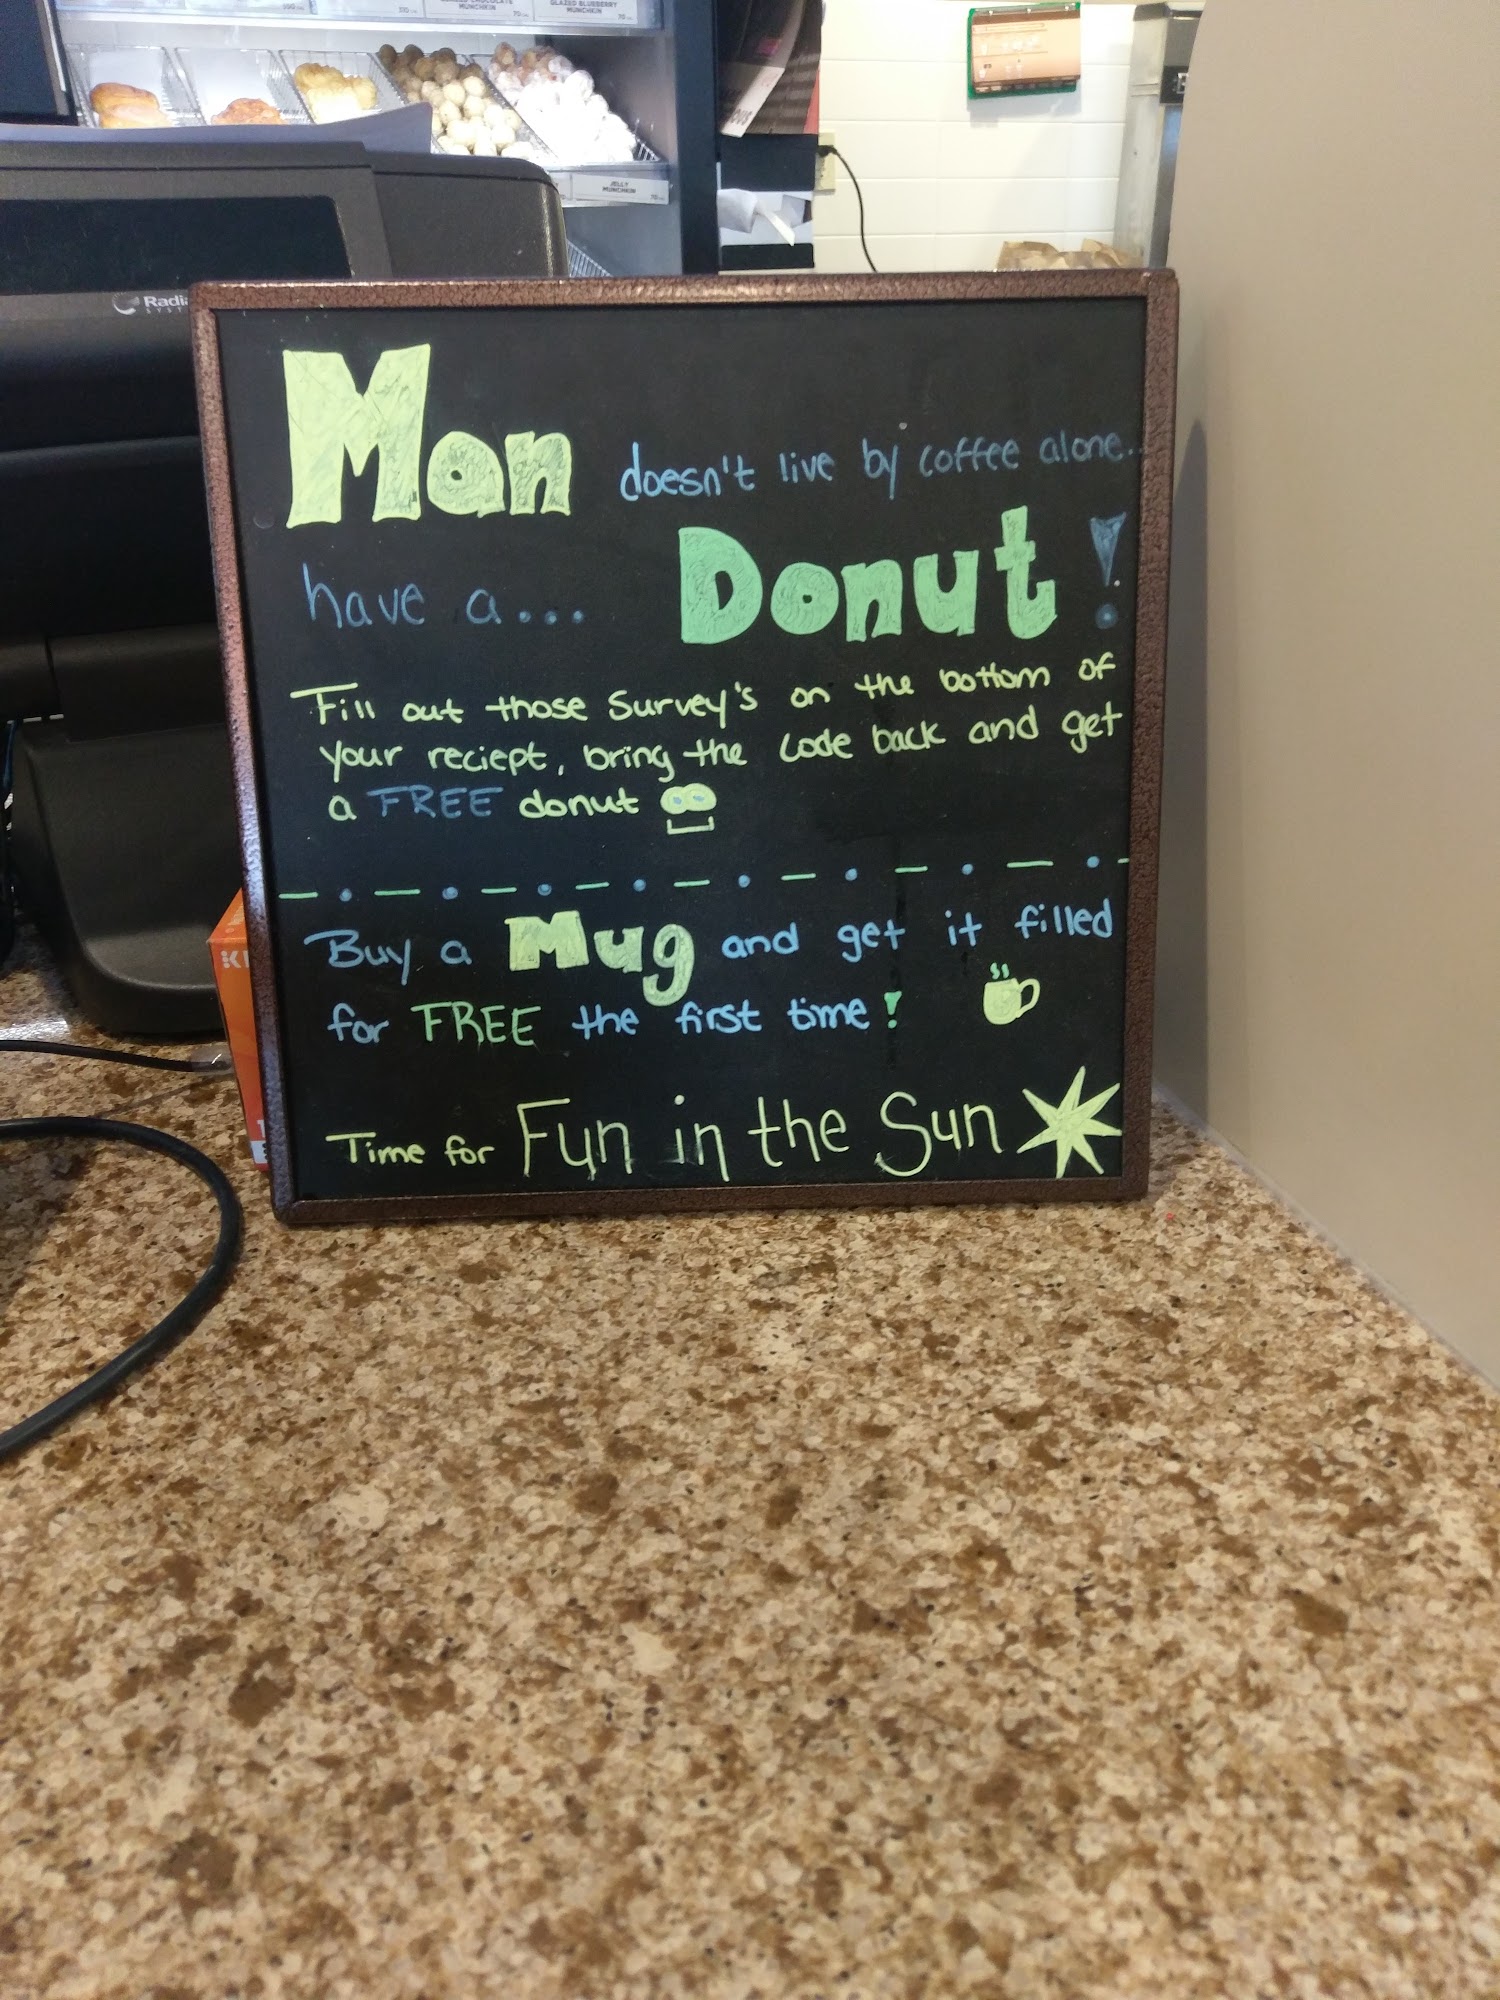 MUNCHKIN
GLAZED BLUEBERRY
MUNCHKIN
JELLY
MUNCHKIN
Man doesn't live by coffee alone..
have a... Donut!
Fill out those Survey's on the bottom of
your reciept, bring the code back and get
a FREE donut
Buy a Mug and get it filled
for FREE the first time!
Time for Fun in the Sun